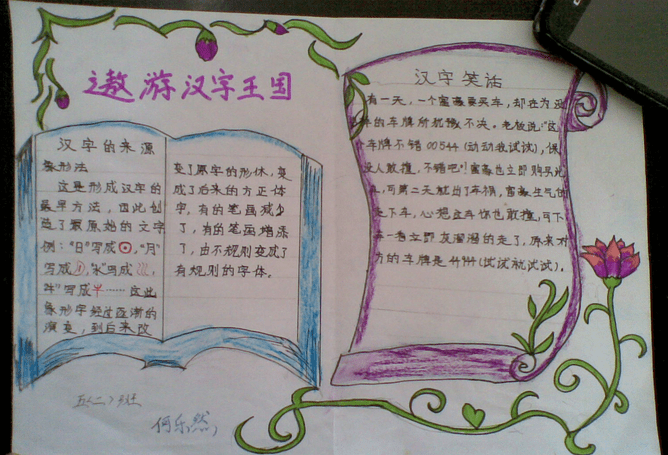 遨游汉字王国
汉字的来源
象形法
这是形成汉字的
最早方法，因此创
造了最原始的文字
例："日"写成，"月"
写成，"水"写成，
写成……这些
象形字经过逐渐的
演变，到后来改
变了原字的形休，变
成了后来的方正体
字，有的笔画减少
了，有的笔画增添
了，由不规则变成了
有规则的字体。
汉字笑话
有一天，一个富豪要买车，却在为
车的车牌所犹豫不决。老板说："这
车牌不错00544（动动我试试），保
没人敢撞，不错吧！富豪也立即购买
，可第二天就出了车祸，富豪生气
走下车，心想这车你也敢撞，可下
一看立即灰溜溜的走了，原来对
方的车牌是44944（试试就试试）。
五〈二〉班
何乐然